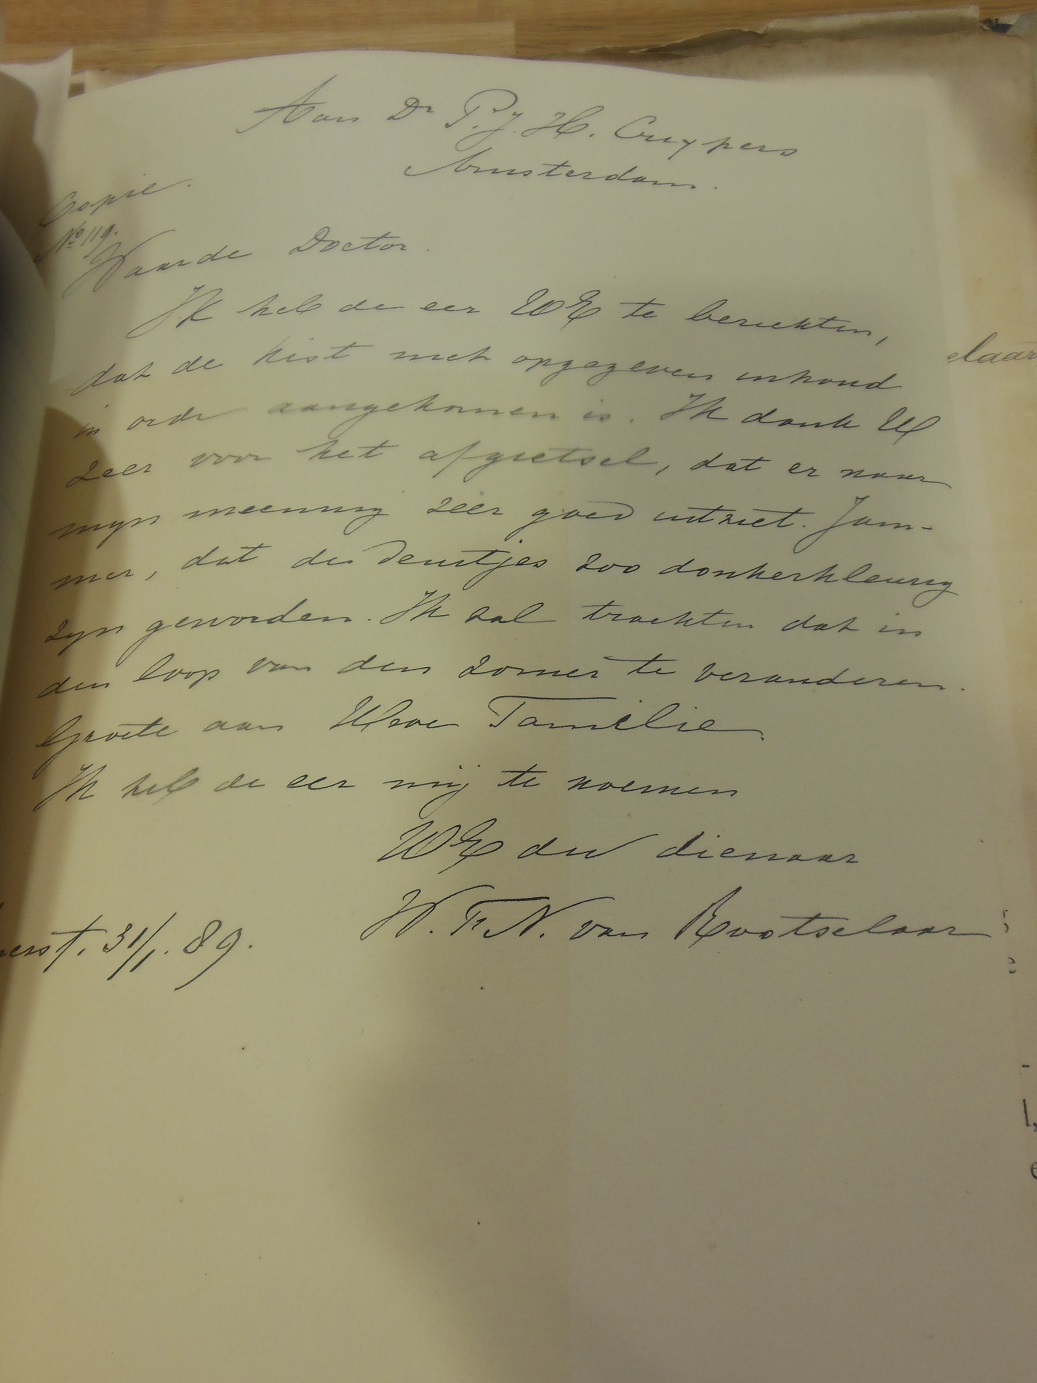 Aan Dr P.J.H. Cuypers
Amsterdam.
Copie.
No 119.
Waarde Doctor.
Ik heb de eer UWE te berichten,
dat de kist met opgegeven inhoud
in orde aangekomen is. Ik dank U
zeer voor het afgietsel, dat er naar
mijn meening zéér goed uitziet. Jam-
mer, dat de deurtjes zoo donkerkleurig
zyn geworden. Ik zal trachten dat in
den loop van den zomer te veranderen.
Groete aan Uwe Familie.
Ik heb de eer mij te noemen
UWE dw dienaar
W. F. N. van Rootselaar
erst. 31/1. 89.
elaar